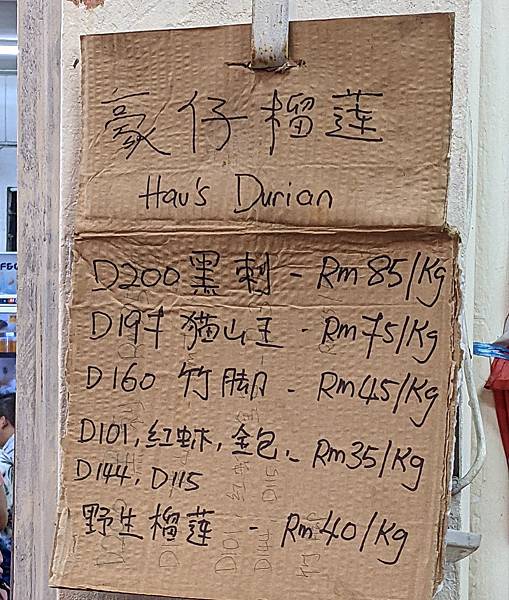 豪仔榴莲
Hau's Durian
D200 黑刺 - Rm85/Kg
D197 猫山王 - Rm75/Kg
D160 竹脚 - Rm45/Kg
D101, 红虾, 金包, - Rm35/Kg
D144, D115
野生榴莲 - Rm40/Kg